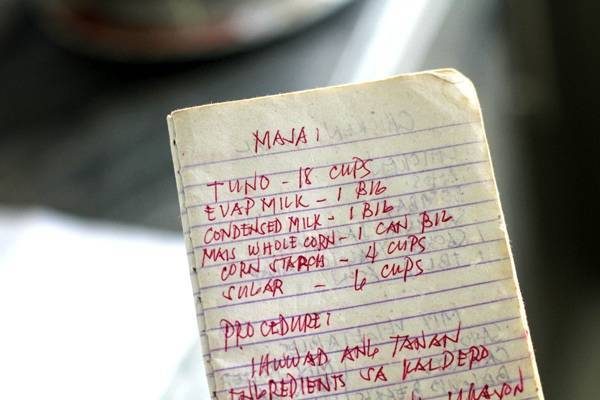 MAJA:
TUNO - 18 CUPS
EVAP MILK - 1 BIG
CONDENSED MILK - 1 BIG
MAIS WHOLE CORN - 1 CAN BIG
CORN STARCH - 4 CUPS
SUGAR - 6 CUPS
PROCEDURE:
IHUWAD ANG TANAN
INGREDIENTS SA KALDERO